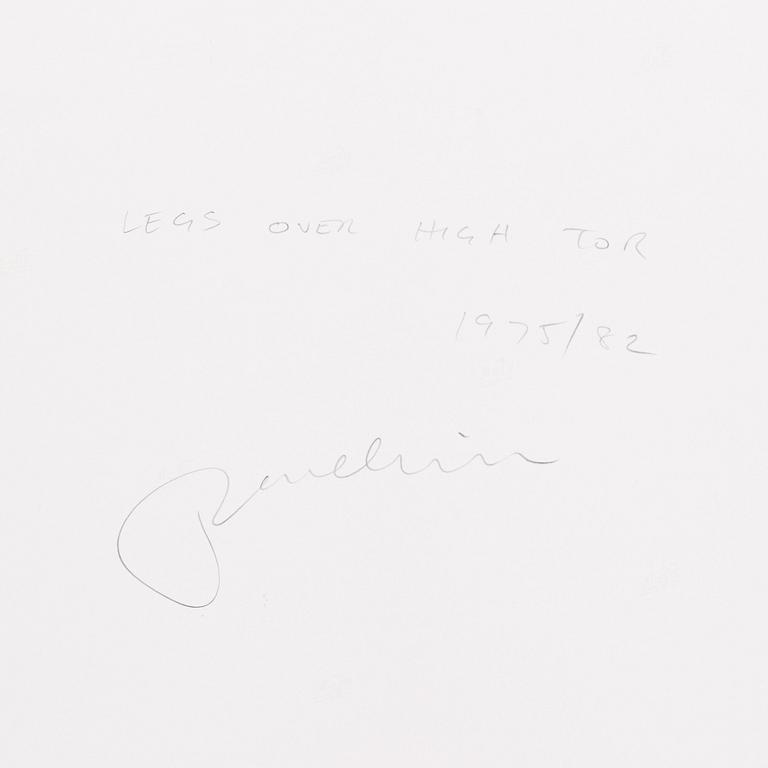 LEGS OVER HIGH TOR
1975/82